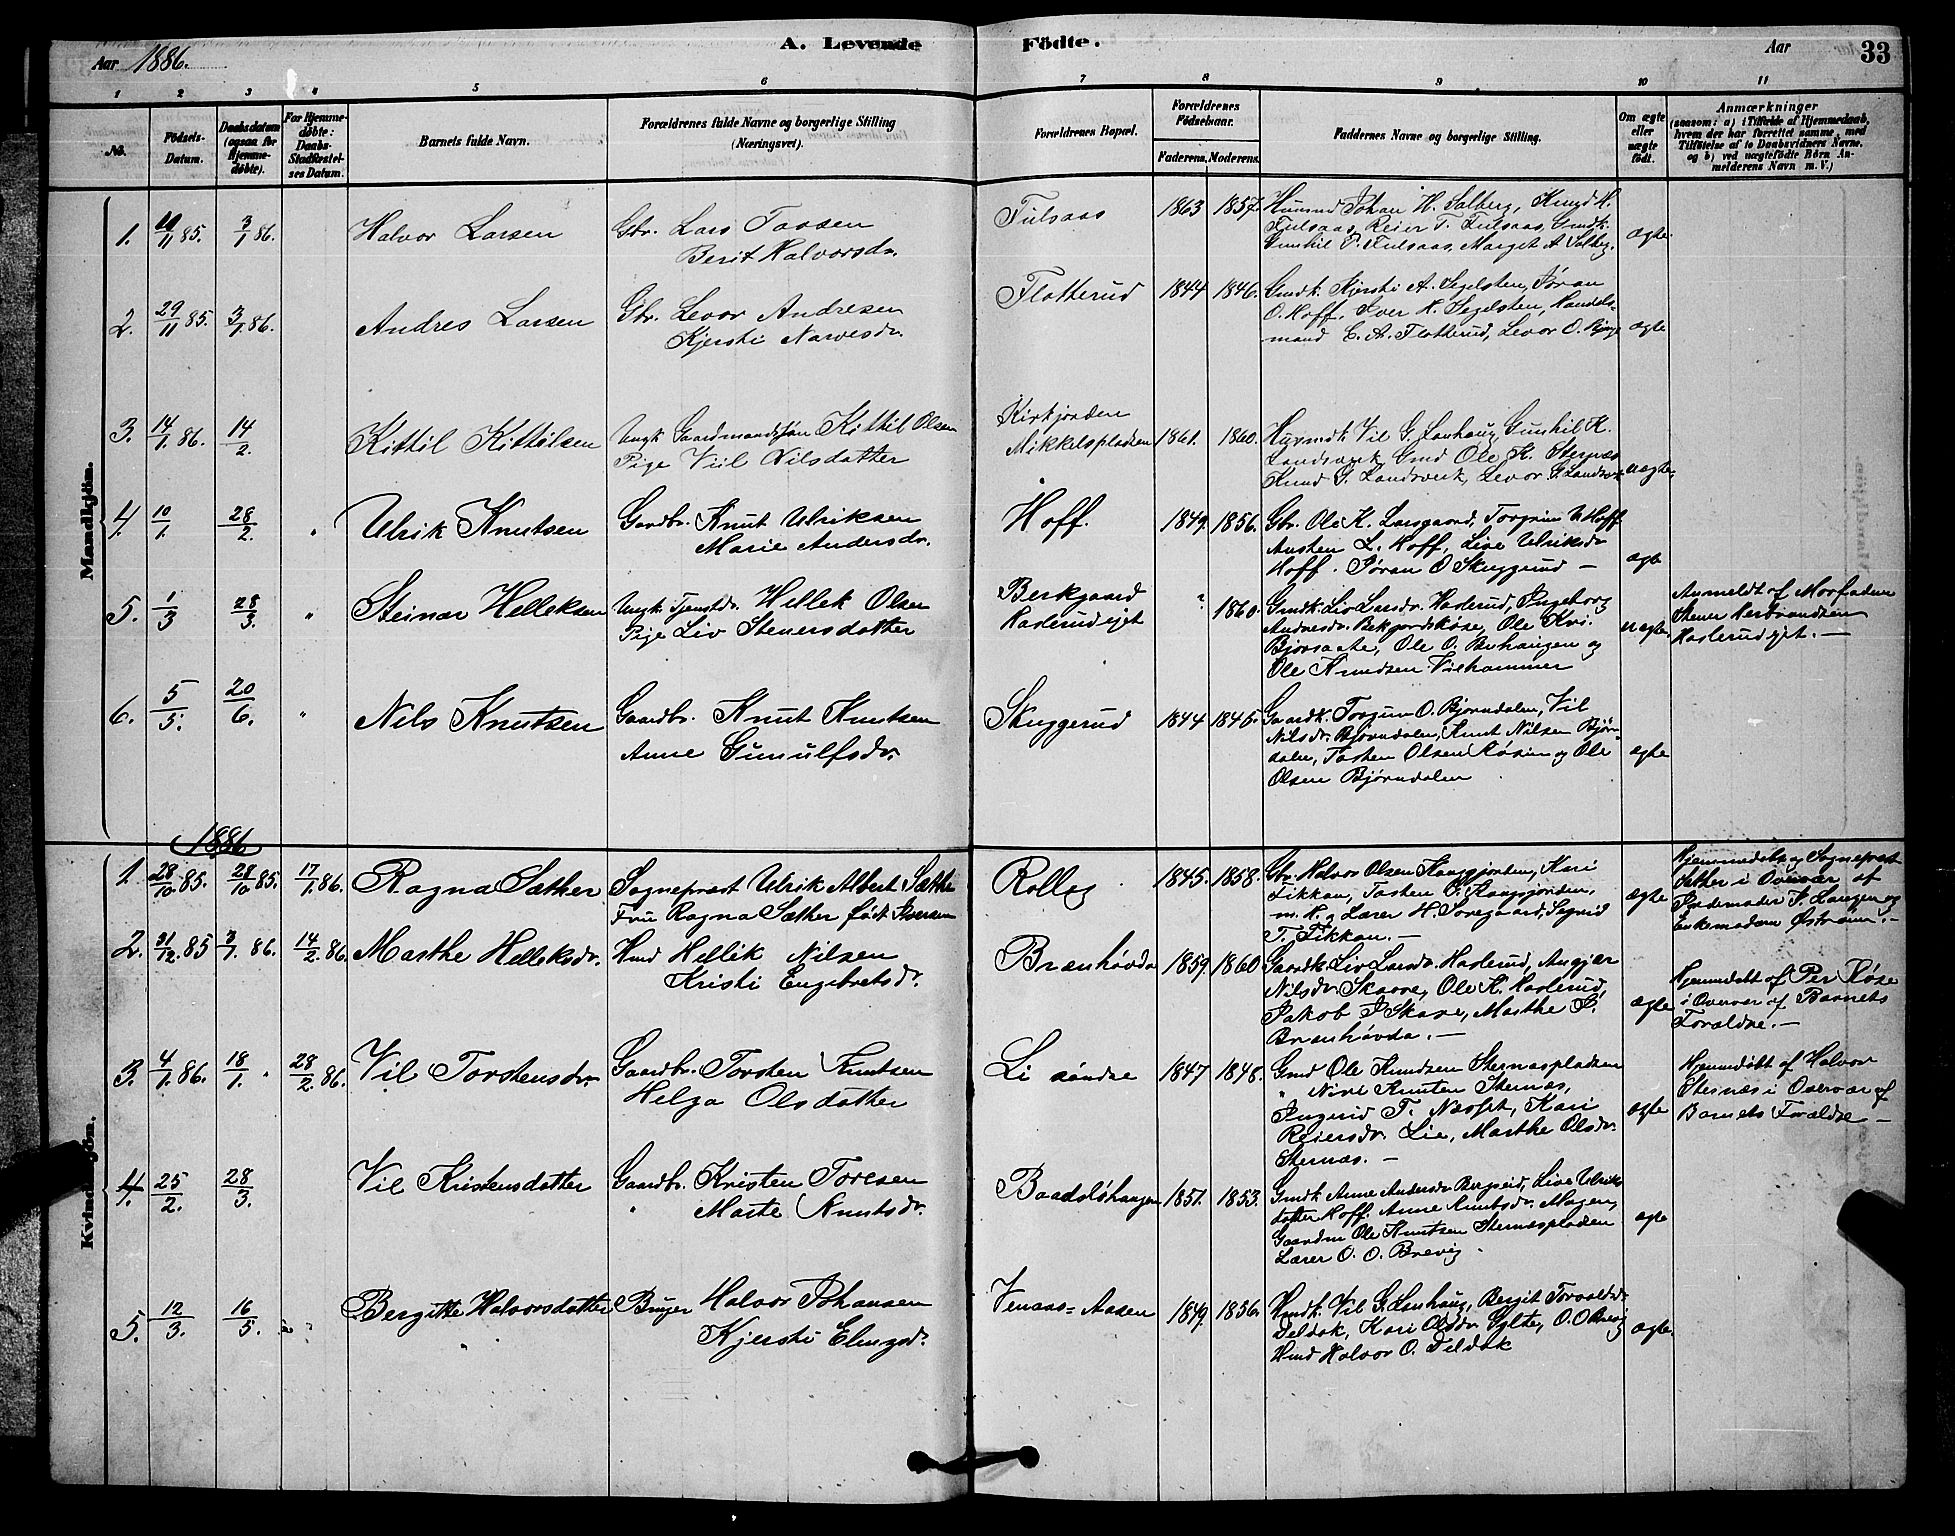 A. Levende Födte.
Aar 1886.
Aar 33
1 2 3 4 5 6 7 8 9 10 11
No.
Födsels-Datum.
Daabsdatum (ogsaa for Hjemmedöbte).
For Hjemmedöbte: Daabs-Stadfæstelses Datum.
Barnets fulde Navn.
Forældrenes fulde Navne og borgerlige Stilling (Næringsvei).
Forældrenes Bopæl.
Forældrenes Födselsaar.
Faderens. Moderens.
Faddernes Navne og borgerlige Stilling.
Om ægte eller uægte födt.
Anmærkninger
(saasom: a) i Tilfælde af Hjemmedaab,
hvem der har forrettet samme, med
Tilföielse af to Daabsvidners Navne,
og b) ved uægtefödte Börn An-
melderens Navn m. V.)
Mandkjön.
1. 11/11 85. 3/1 86. Halvor Larsen
Gbr. Lars Tossen
Berit Halvorsdr.
Fulsaas 1863 1857.
Husmd Johan H. Salberg, Knud H.
Fulsaas, Reier T. Fulsaas, Gmdk.
Gunhil P. Fulsaas, Marget A Salberg.
ægte.
2. 29/11 85. 3/1 86. Andres Larsen
Gbr. Levor Andresen
Kjersti Narvesdr.
Flotterud 1844 1846.
Gmdk. Kjersti A. Segelsten, Jøran
O. Hoff, Iver H. Segelsten, Handels-
mand E. A. Flotterud, Levor O.
ægte
3. 14/1 86. 14/2. Kittil Kittilsen
Ungk. Gaardmandssøn Kittil Olsen
Pige Viil Nilsdatter
Kirkjorden
Mikkelspladsen 1861. 1860.
Husmdk. Vil G. Lonhaug Gunhil K.
Landsverk, Gmd Ole K. Sternæs
Knud G. Landsverk, Levor G. Landsverk
uægte.
4. 10/1. 28/2. " Ulrik Knutsen
Gaardbr. Knut Ulriksen
Marie Andersdr.
Hoff. 1849. 1856.
Gbr. Ole K. Larsgaard, Torgrim U. Hoff
Austen L. Hoff, Live Ulriksdr
Hoff. Jøran O Skuggerud —
ægte
5. 1/3 28/3. " Steinar Helleksen
Ungk. Tjenstdr. Hellek Olsen
Pige Liv Stenersdatter
Berkgaard
Haslerudejet ? 1860.
Gmdk. Liv Larsdr. Haslerud, Ingeborg
Andresdr. Bekgaardskåse, Ole Kri.
Bjørsaate, Ole O. Berhaugen og
Ole Knudsen Viehammer
uægte.
Anmeldt af Morfaderen
Stener Herbrandsen
Haslerudejet. —
6. 5/5. 20/6. " Nils Knutsen
Gaardbr. Knut Knutsen
Anne Gunulfsdr.
Skuggerud 1844 1845.
Gaardk. Torgun O. Bjørndalen, Vil
Nilsdr. Bjørndalen, Knut Nilsen Bjørn-
dalen, Tosten Olsen og Ole
Olsen Bjørndalen
ægte
1886
Kvindekjön.
1. 28/10 85. 28/10 85. 17/1 86. Ragna Sæther.
Sogneprest Ulrik Albert Sæther
Fru Ragna Sæther født Iversen
Rollag. 1845. 1858.
Gbr. Halvor Olsen Haugjorden, Kari
Fikkan, Tosten O. Haugjorden,
m. K. Lærer H. Soregaard, Sigrid
T. Fikkan. —
ægte
Hjemmedøbt af Sogneprest
Sæther i Overvær af
Jordemoder J. Langen og
Enkemadam Østrøm. —
2. 31/12. 85 3/1. 86. 14/2. 86. Marthe Helleksdr.
Hmd Hellik Nilsen
Kristi Engebretsdr.
Brænhøvda 1859. 1860
Gaardk. Liv Larsdr. Haslerud, Angjær
Nilsdr. Skaare, Ole K. Haslerud,
Jakob P Skare, Marthe P.
Brænhøvda. —
ægte
Hjemmedøbt af Per Kåse
i Overvær af Barnets
Forældre. —
3. 4/1. 86. 18/1. " 28/2. 86. Vil Torstensdr.
Gaardbr. Torsten Knutsen
Helga Olsdatter
Li søndre 1847 1848.
Gmd Ole Knudsen Sternæspladsen
" Niri Knuten Sternæs,
Ingerid T. Næset, Kari
Reiersdr. Lie, Marthe Olsdr.
Sternæs. —
ægte
Hjemmedøbt af Halvor
Sternæs i Overvær af
Barnets Forældre —
4. 25/2. 28/3. Vil Kristensdatter
Gaardbr. Kristen Toresen
" Marte Knutsdr.
Baadsløhaugen 1851. 1853.
Gmdk. Anne Andersdr Bergseid, Live Ulriks
datter Hoff. Anne Knutsdr. Mogen,
Gaardm Ole Knutsen Sternæspladsen
Lærer O. O. Brevig.
ægte
5. 12/3. 16/5. " " Bergitte Halvorsdatter
Bruger Halvor Johansen
Kjersti Elingsdr.
Venaas=Aasen 1849. 1856.
Hmdk. Vil G. Lonhaug, Bergit Torvaldsd.
Teldok, Kari Olsdr. Sylte, O. O Brevig
Hmd Halvor O. Teldok
ægte.